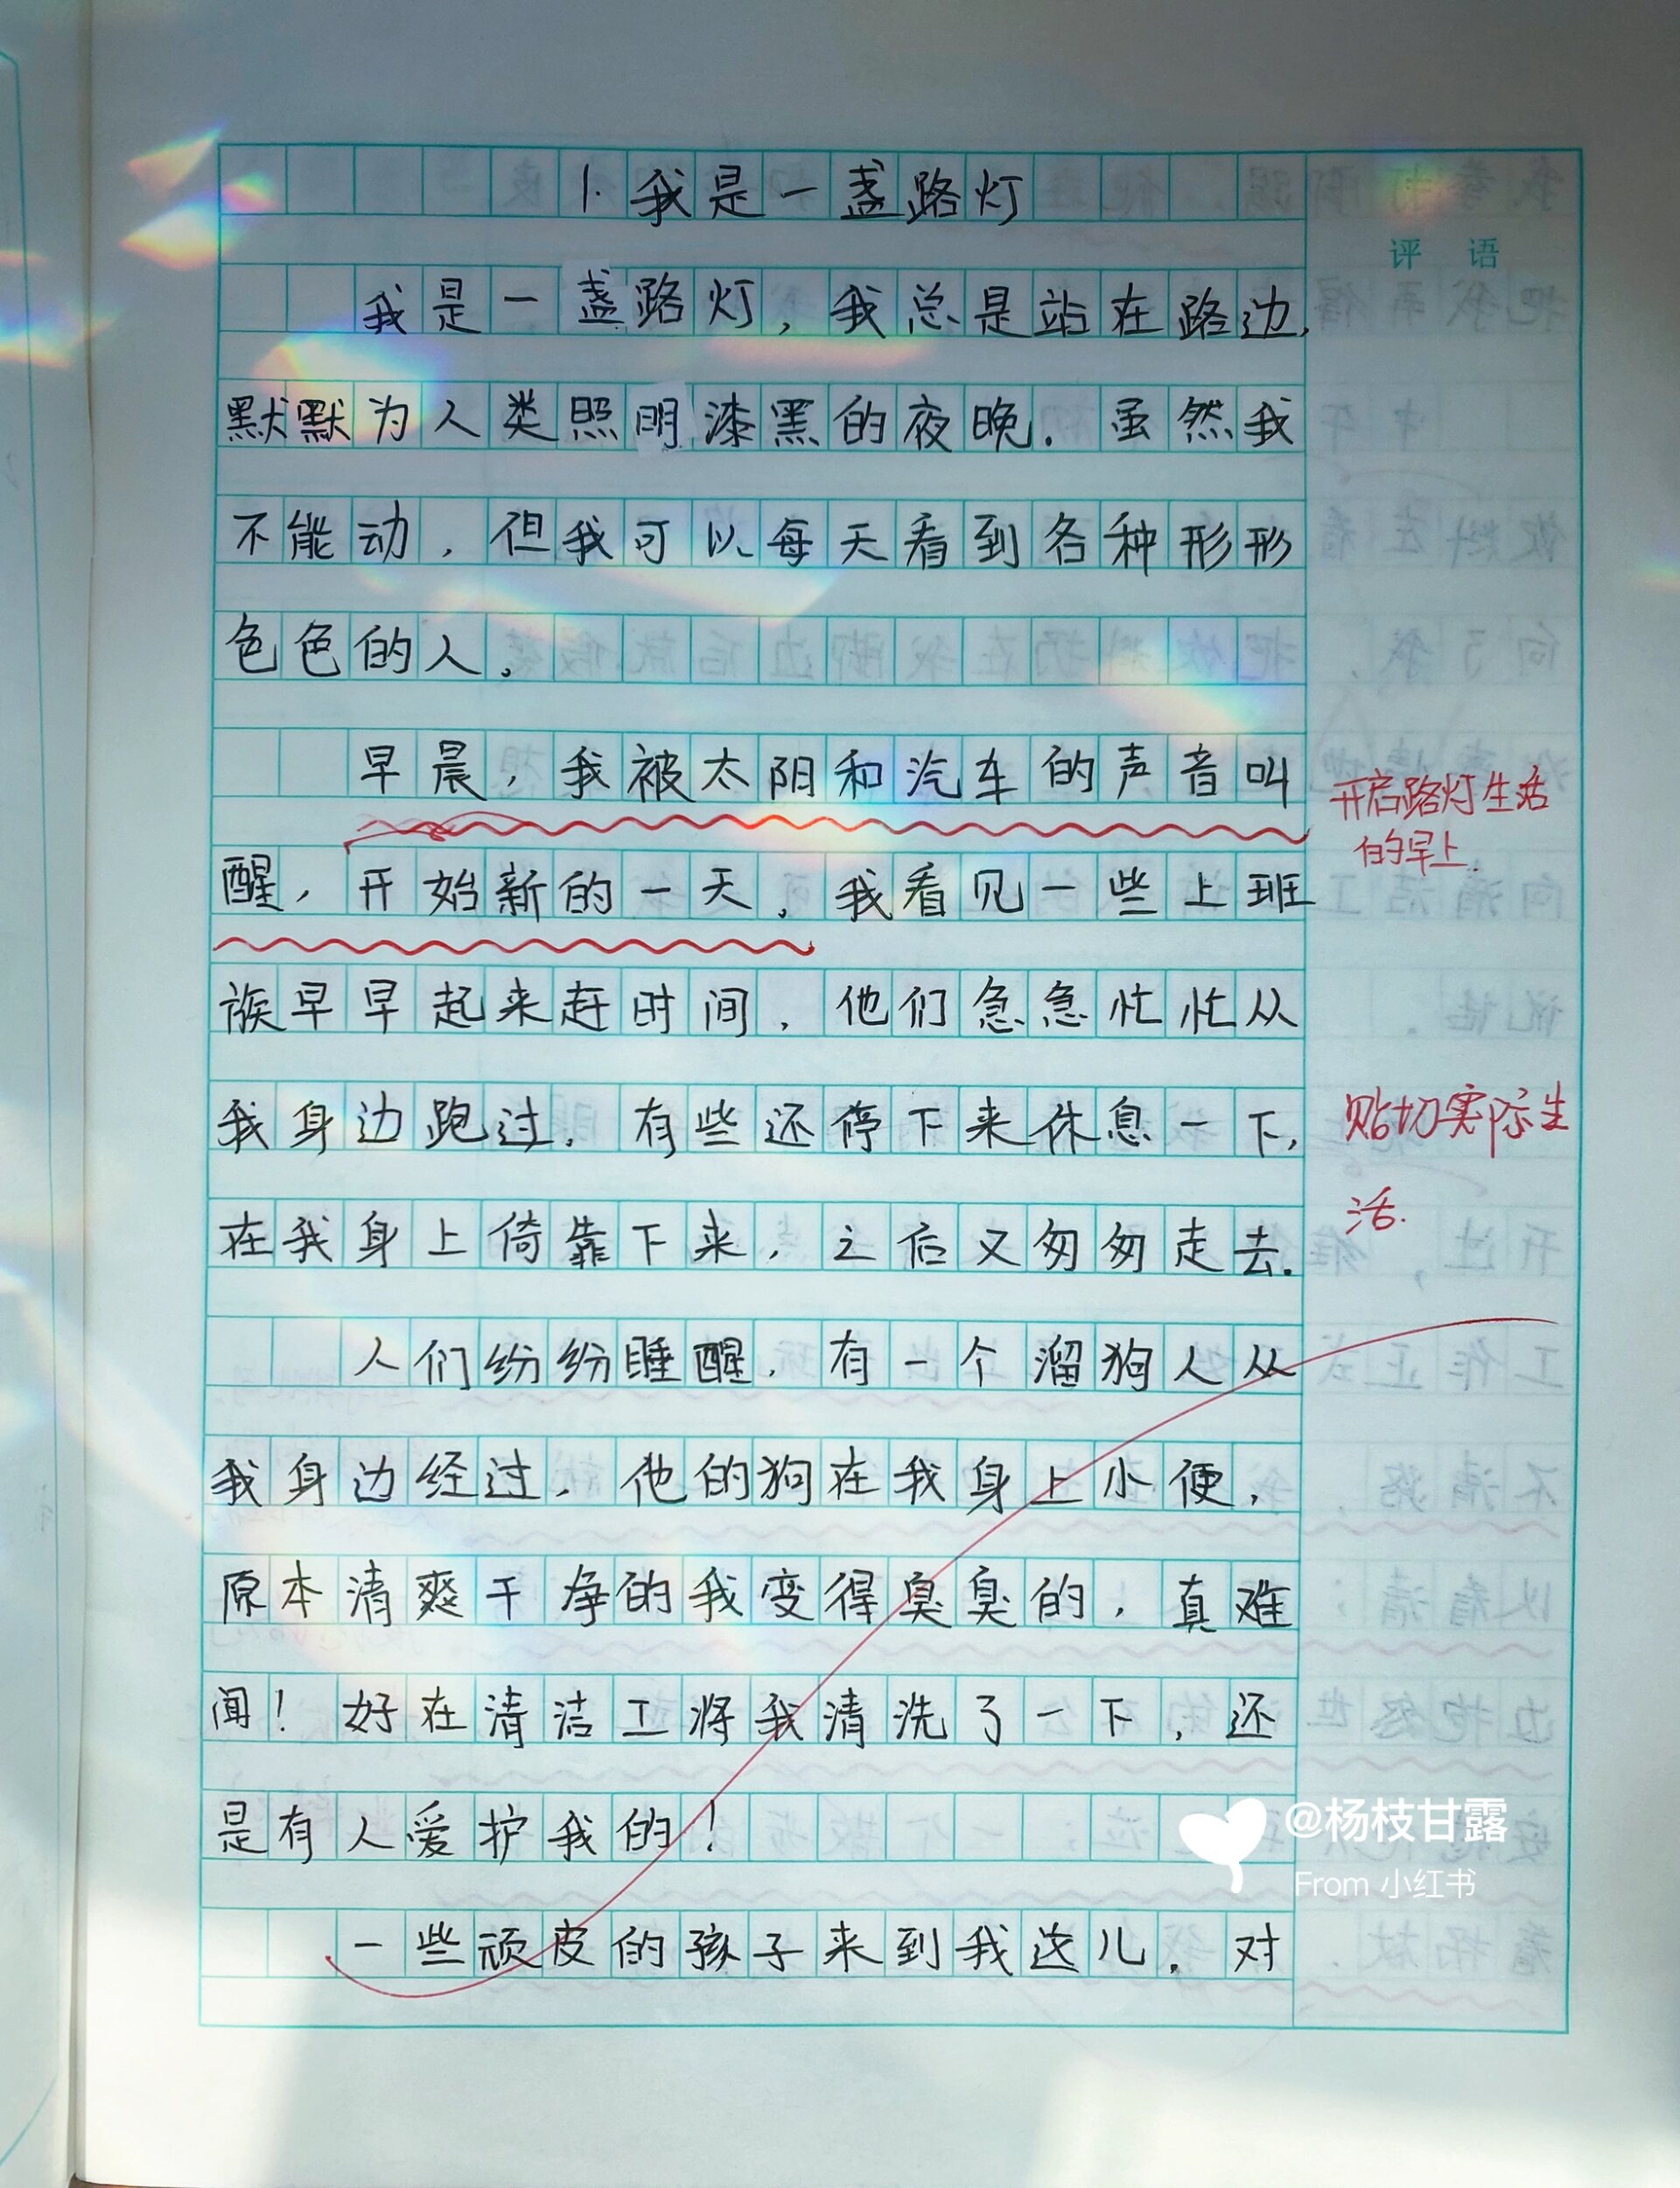 1.我是一盏路灯
评 语
我是一盏路灯,我总是站在路边,
默默为人类照明漆黑的夜晚.虽然我
不能动,但我可以每天看到各种形形
色色的人。
早晨,我被太阳和汽车的声音叫
开启路灯生活
的早上.
醒,开始新的一天。我看见一些上班
族早早起来赶时间,他们急急忙忙从
我身边跑过.有些还停下来休息一下,
贴切实际生
活.
在我身上倚靠下来,之后又匆匆走去.
人们纷纷睡醒.有一个溜狗人从
我身边经过.他的狗在我身上小便,
原本清爽干净的我变得臭臭的,真难
闻!好在清洁工将我清洗了一下,还
是有人爱护我的!
一些顽皮的孩子来到我这儿.对
@杨枝甘露
From 小红书